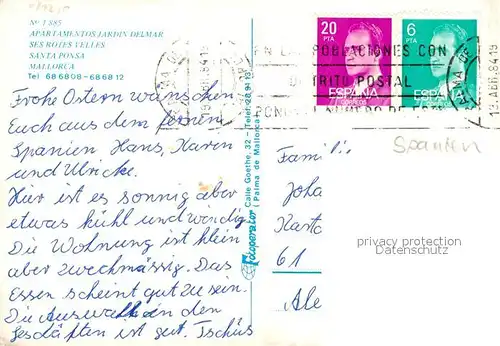 Nº 1 885
APARTAMENTOS JARDIN DELMAR
SES ROZES VELLES
SANTA PONSA
MALLORCA
Tel 68 68 08 - 68 68 12
Frohe Ostern wünschen
Euch aus dem fernen
Spanien Hans, Karen
und Ulrike.
Hier ist es sonnig aber
etwas kühl und windig
Die Wohnung ist klein
aber zweckmässig. Das
Essen scheint gut zu sein.
Die Auswahl in den
Geschäften ist gut. Tschüs
Fotoperator
Calle Goethe, 32 - Telef. 28 91 13
(Palma de Mallorca)
20 PTA
ESPAÑA
CORREOS
6 PTA
ESPAÑA
EN LAS POBLACIONES CON
DISTRITO POSTAL
PONGA EL NUMERO DE ESTE
ABR. 84-19
13 ABR. 84-19
Spanien
Famili
Joha
Karto
61
Ale
privacy protection
Datenschutz